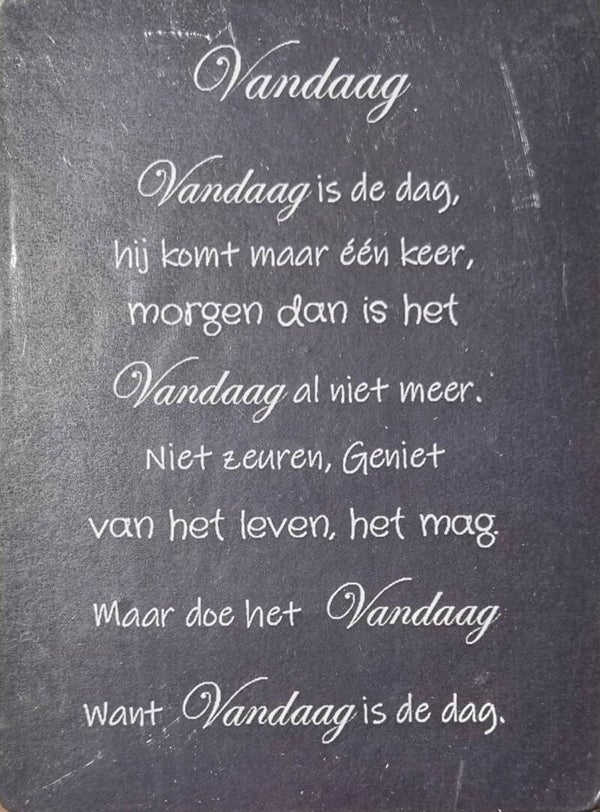 Vandaag
Vandaag is de dag,
hij komt maar één keer,
morgen dan is het
Vandaag al niet meer.
Niet zeuren, Geniet
van het leven, het mag.
Maar doe het Vandaag
want Vandaag is de dag.